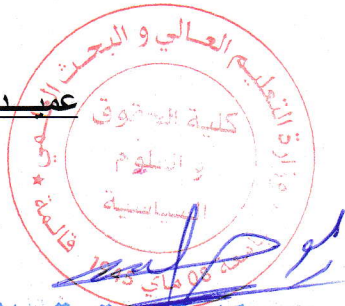 عميد
وزارة التعليم العالي و البحث العلمي
كلية الحقوق
و العلوم
السياسية
جامعة 08 ماي 1945 قالمة